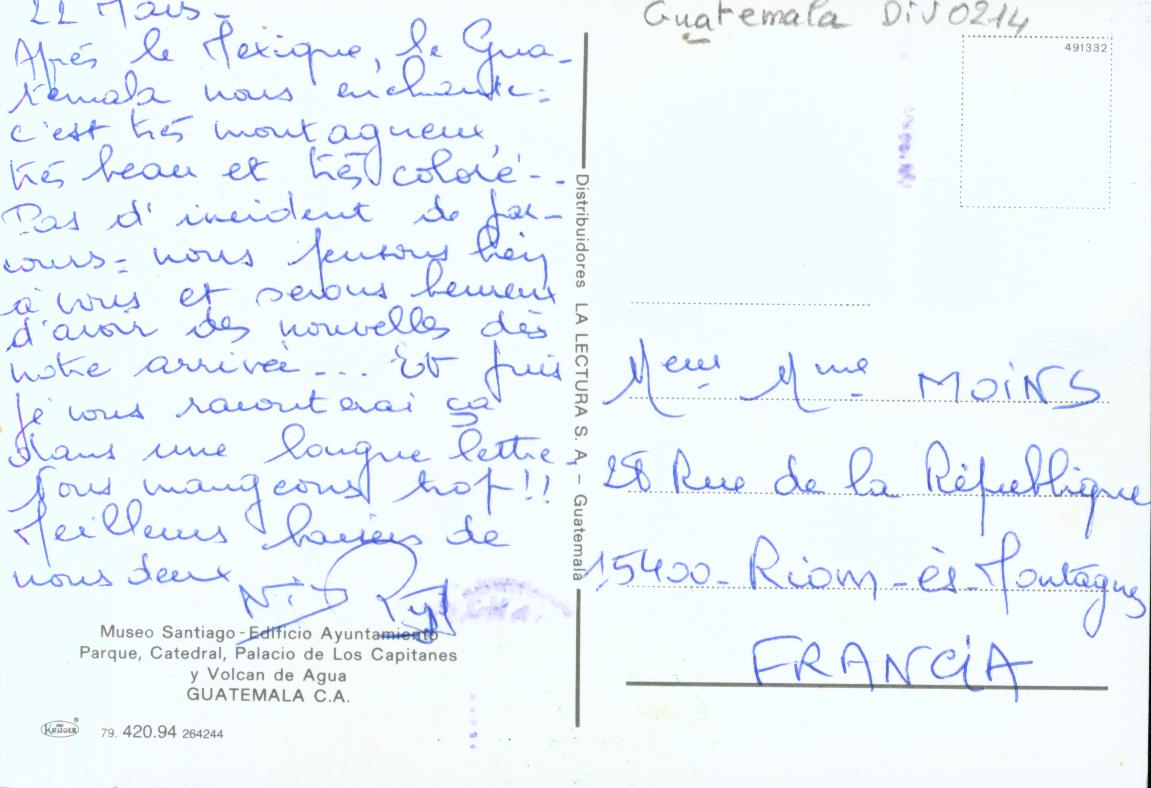 22 Mars -
Après le Mexique, le Gua-
temala nous enchante :
c'est très montagneux,
très beau et très coloré - -
Pas d'incident de par-
cours = nous pensons bien
à vous et serons heureux
d'avoir des nouvelles dès
notre arrivée ... Et puis
je vous raconterai ça
dans une longue lettre
Nous mangeons trop !!
Meilleurs baisers de
nous deux
Museo Santiago - Edificio Ayuntamiento
Parque, Catedral, Palacio de Los Capitanes
y Volcan de Agua
GUATEMALA C.A.
KRÜGER
79. 420.94 264244
Distribuidores LA LECTURA S. A. – Guatemala
Guatemala DIV0214
491332
M et Mme MOINS
28 Rue de la République
15400 - Riom - ès - Montagnes
FRANCIA